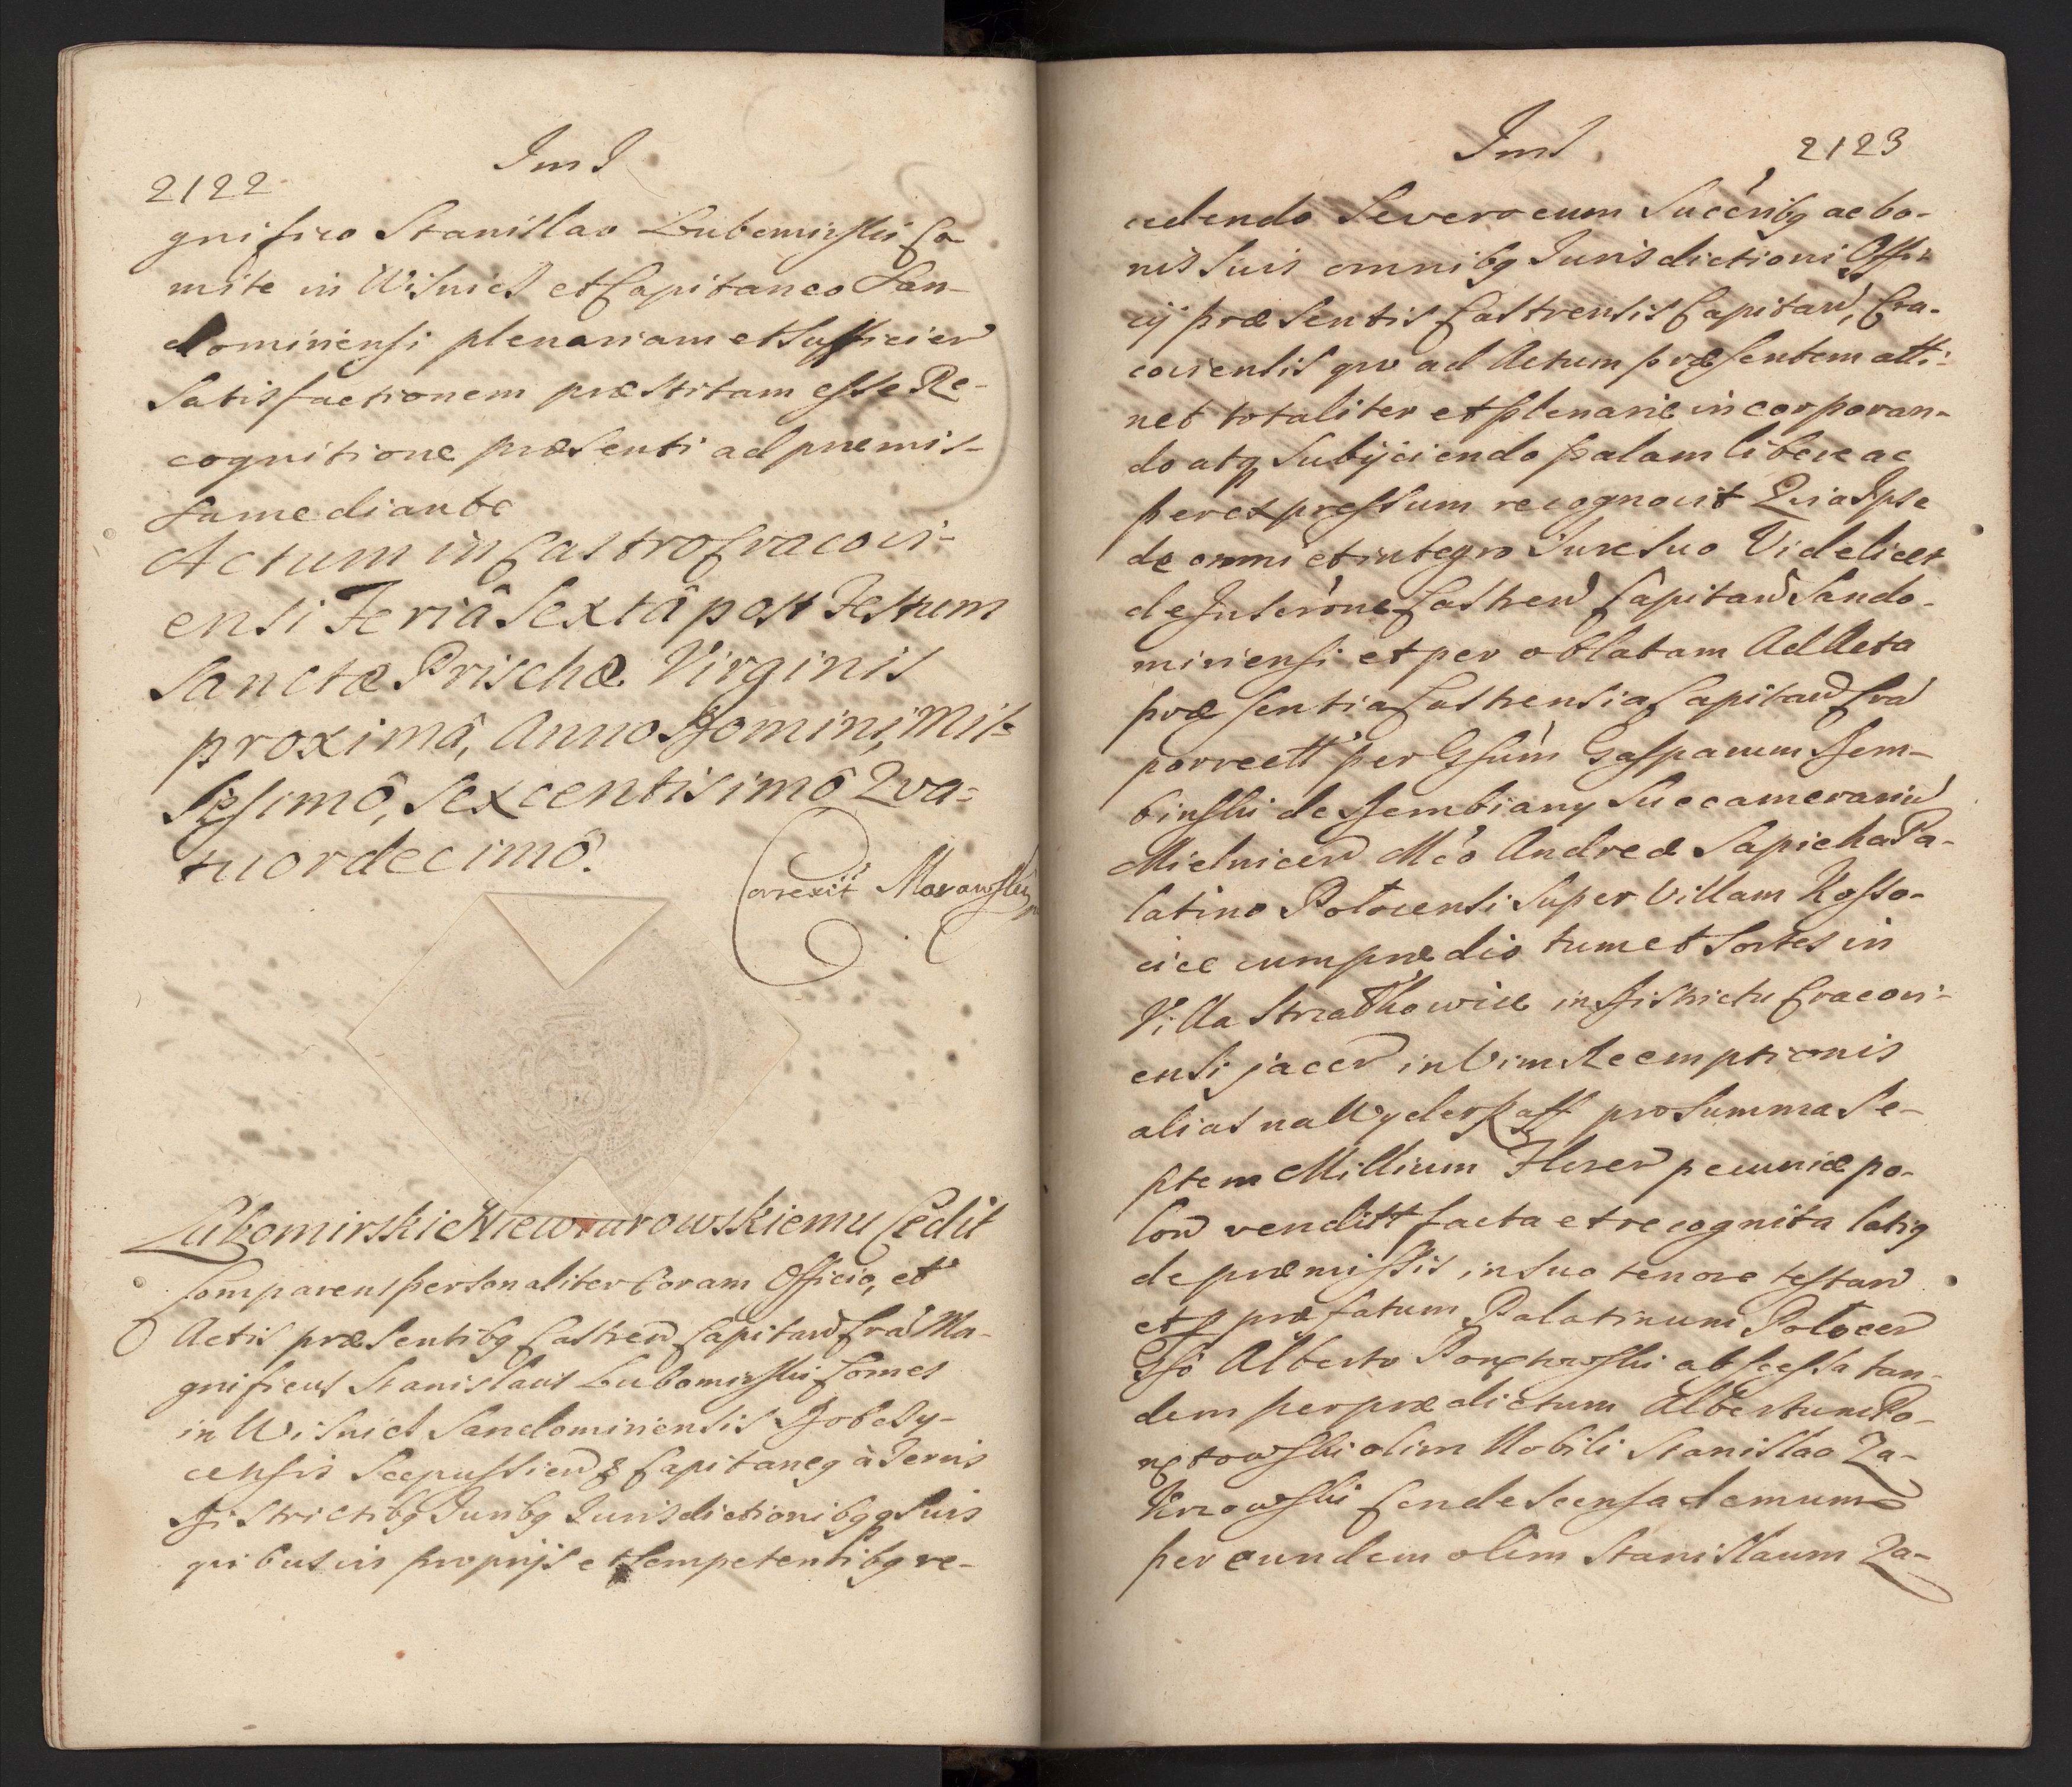 2122
ImI
gnifico Stanislao Lubomirski Co
mite in Wisnicz et Capitaneo San-
domiriensi plenariam et Sufficien
Satisfactionem præstitam esse Re-
cognitione præsenti ad præmis-
sa mediante
Actum in Castro Cracovi-
ensi Feriâ Sextâ post Festum
Sanctæ Prischæ Virginis
proximâ, Anno Domini, Mil-
lesimô, Sexcentisimô Qva-
tuordecimô.
Correxit Morawski
Lubomirski Niewiarowskiemu Cedit
Comparens personaliter Coram Officio, et
Actis præsentibq Castren Capitan Cra Ma-
gnificus Stanislaus Lubomirski Comes
in Wisnicz Sandomiriensis Dobczy-
censis Scepussien & Capitaneq à Terris
Districtibq Juribq Jurisdictionibqq Suis
quibusvis proprijs et Competentibq re-
ImI
2123
cedendo Se vero cum Succribq ac bo-
nis Suis omnibq Jurisdictioni Offi-
cij præsentis Castrensis Capitan, Cra-
coviensis qvo ad Actum præsentem atti-
net totaliter et plenarie incorporan-
do atq Subijciendo palam libere ac
per expressum recognovit Qvia Ipse
de omni et integro Jure Suo Videlicet
de Inscrone Castren Capitan Sando-
miriensi et per oblatam Ad Acta
præsentia Castrensia Capitan Cra
porrectt per Gsum Gasparum Dem-
binski de Dembiany Succamerariu
Mielnicen Mco Andreæ Sapieha Pa-
latino Polocensi Super Villam Kosso-
cice cum prædio tum et Sortes in
Villa Strzałkowice in Districtu Cracovi-
ensi jacen in Vim Reemptionis
alias na Wyderkaff pro Summa Se-
ptem Millium Floren pecuniæ po-
lon venditt facta et recognita latiq
de præmissis in Suo tenore testan
et p præfatum Palatinum Polocen
Gso Alberto Ponętowski ab scessa tan-
dem per prædictum Albertum Po-
nętowski olim Nobili Stanislao Za-
krzowski Condescensa demum
per eundem olim Stanislaum Za-